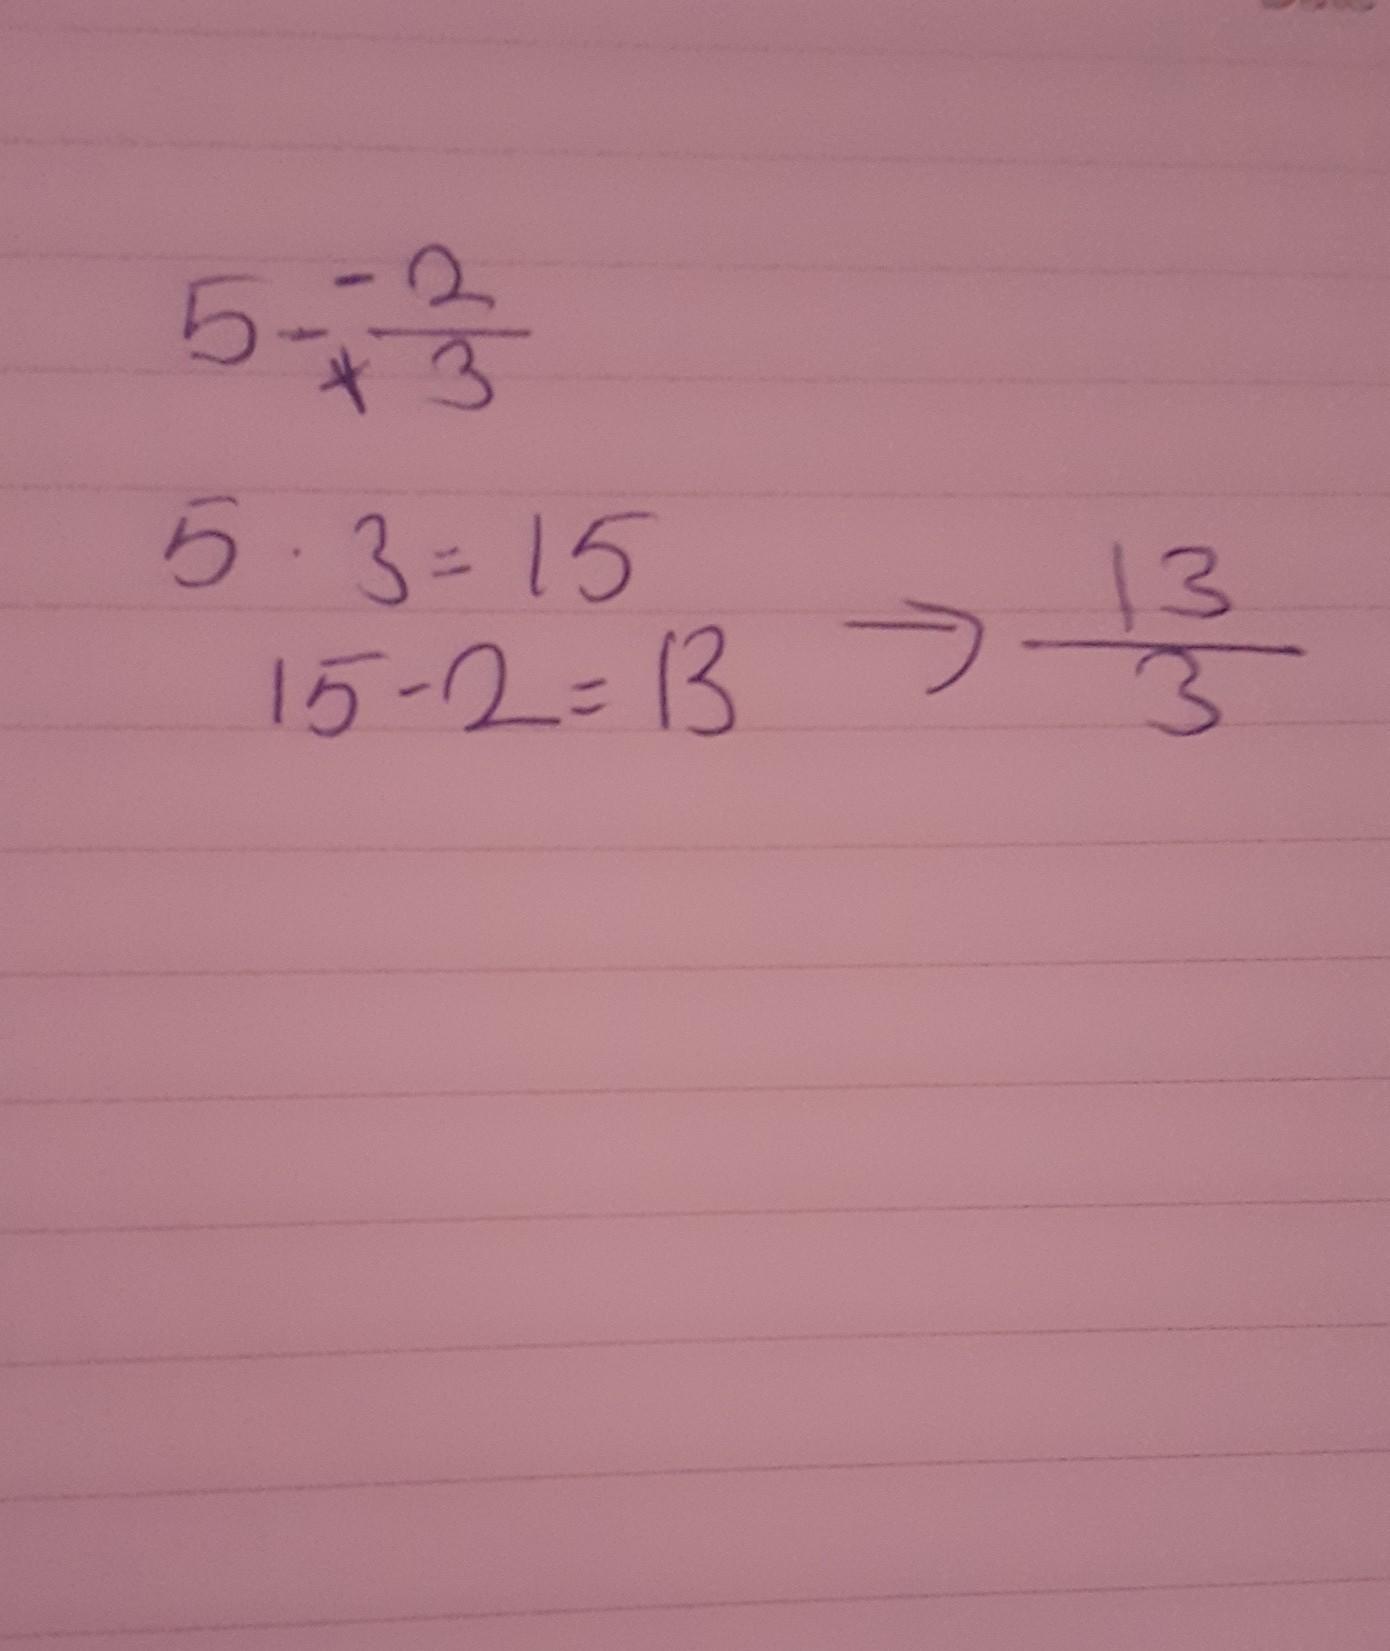 5 - -2/*3
5 · 3 = 15
15 - 2 = 13 → 13/3